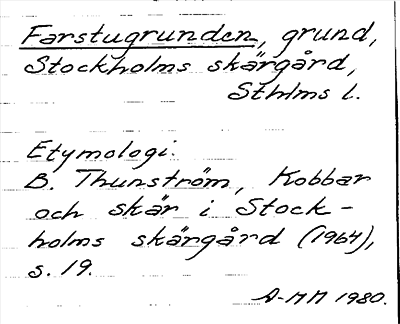 Farstugrunden, grund,
Stockholms skärgård,
Sthlms l.
Etymologi.
B. Thunström, Kobbar
och skär i Stock-
holms skärgård (1964),
s. 19.
A-MM 1980.